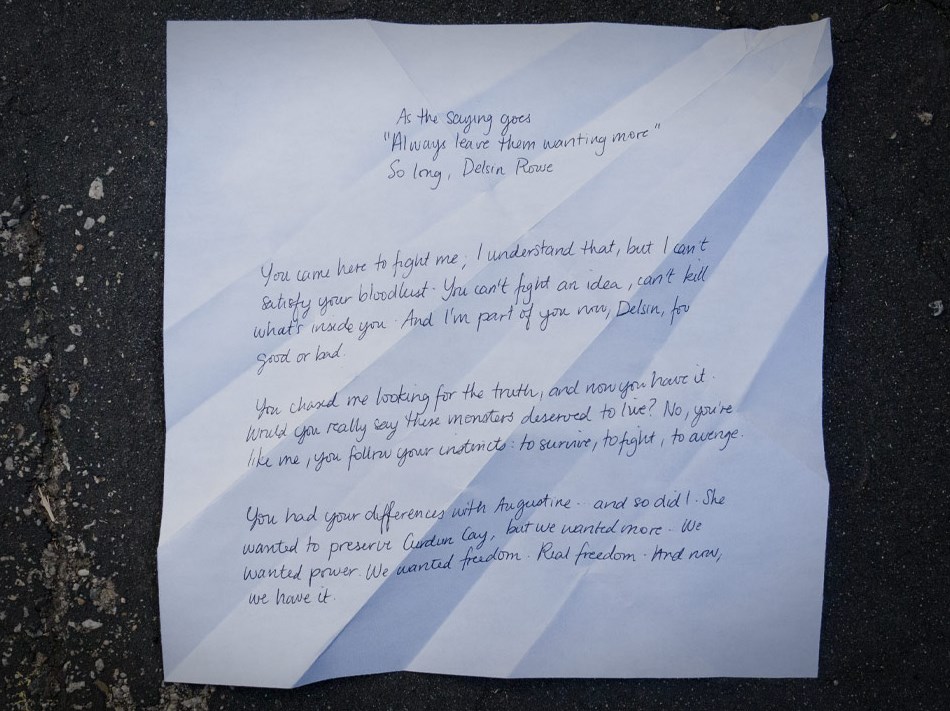 As the saying goes
"Always leave them wanting more"
So long, Delsin Rowe
You came here to fight me; I understand that, but I can't
satisfy your bloodlust. You can't fight an idea, can't kill
what's inside you. And I'm part of you now, Delsin, for
good or bad.
You chased me looking for the truth, and now you have it.
Would you really say these monsters deserved to live? No, you're
like me, you follow your instincts: to survive, to fight, to avenge.
You had your differences with Augustine.. and so did I. She
wanted to preserve Curdun Cay, but we wanted more. We
wanted power. We wanted freedom. Real freedom. And now,
we have it.